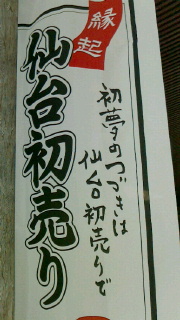 縁起
仙台初売り
初夢のつづきは
仙台初売りで